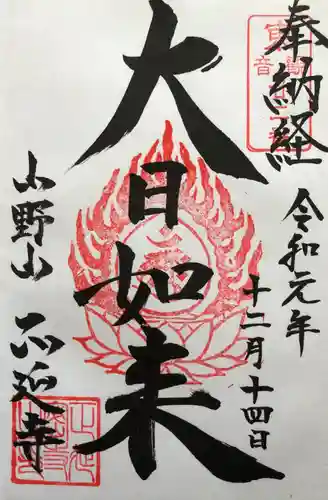 奉納経
令和元年
十二月十四日
大日如来
山野山
不延寺